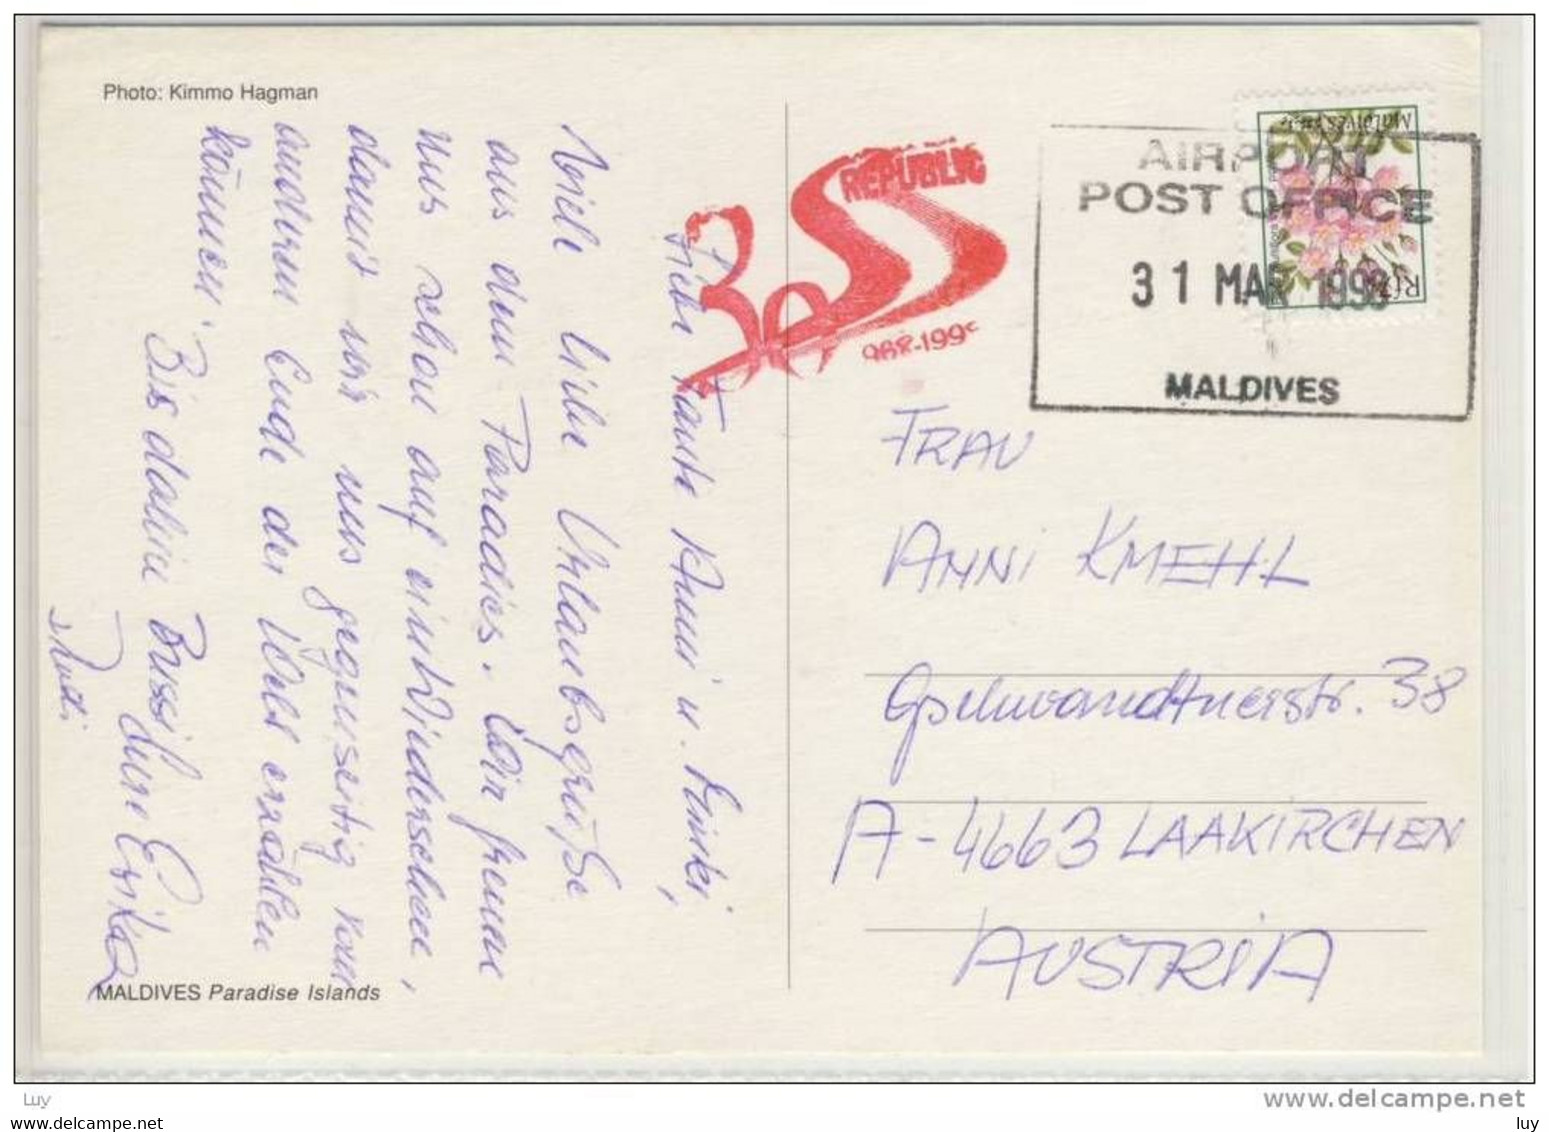 Photo: Kimmo Hagman
Liebe Tante Anni u.
Viele liebe Urlaubsgrüße
aus dem Paradies. Wir freuen
uns schon auf ein Wiedersehen,
damit wir uns gegenseitig vom
anderen Ende der Welt erzählen
können. Bis dahin Bussi Eure Erika
Rudi
MALDIVES Paradise Islands
REPUBLIC
30
AIRPORT
POST OFFICE
31 MAR
MALDIVES
MALDIVES
FRAU
ANNI KMEHL
Gschwandtnerstr. 38
A-4663 LAAKIRCHEN
AUSTRIA
Luy
www.delcampe.net
luy